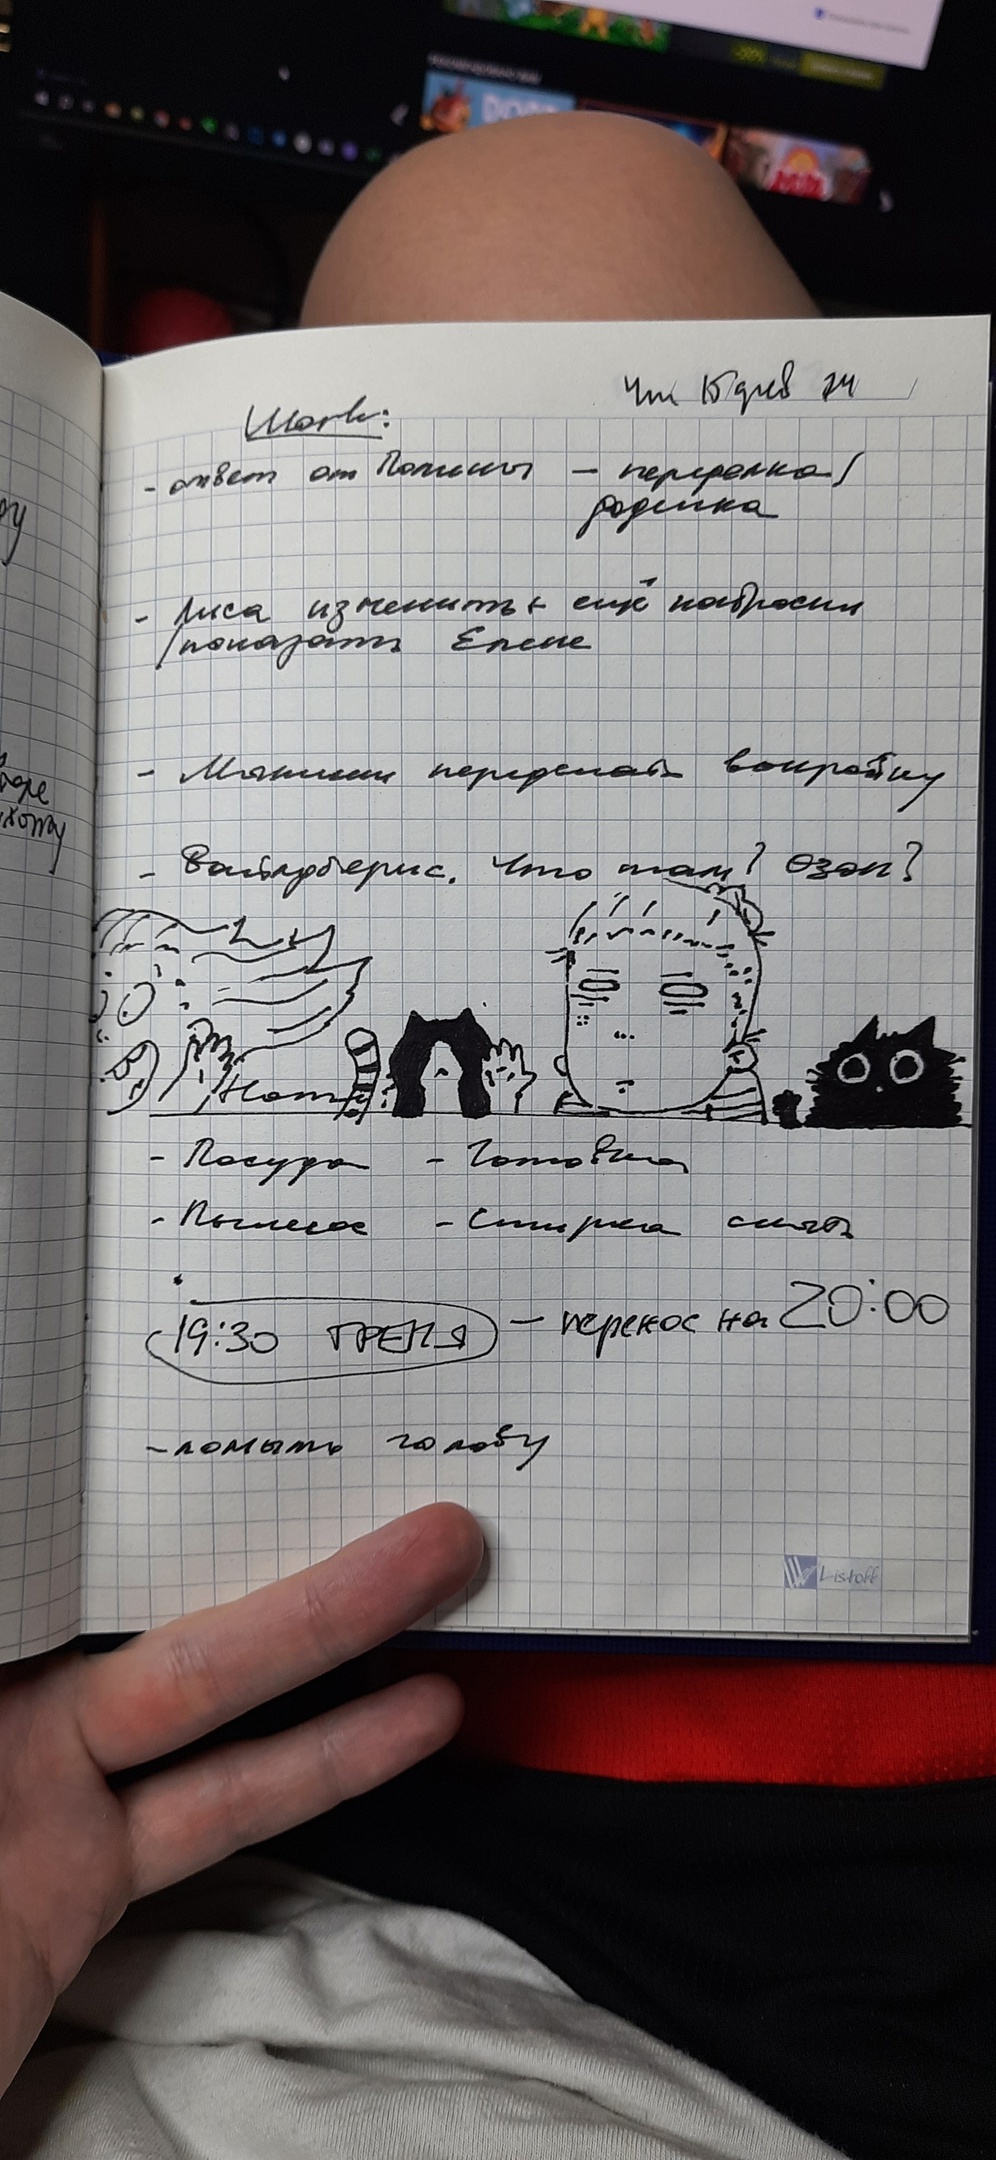 Чт 15 фев 24
Work:
- ответ от Полины – переделка/
доделка
- Лиса изменить + ещё наброски
/показать Елене
- Мякиши переделать выкройку
- Вайлдберис. Что там? Озон?
Home
- Посуда - Готовка
- Пылесос - Стирка снять
19:30 ТРЕНЯ – перенос на 20:00
- помыть голову
Listoff